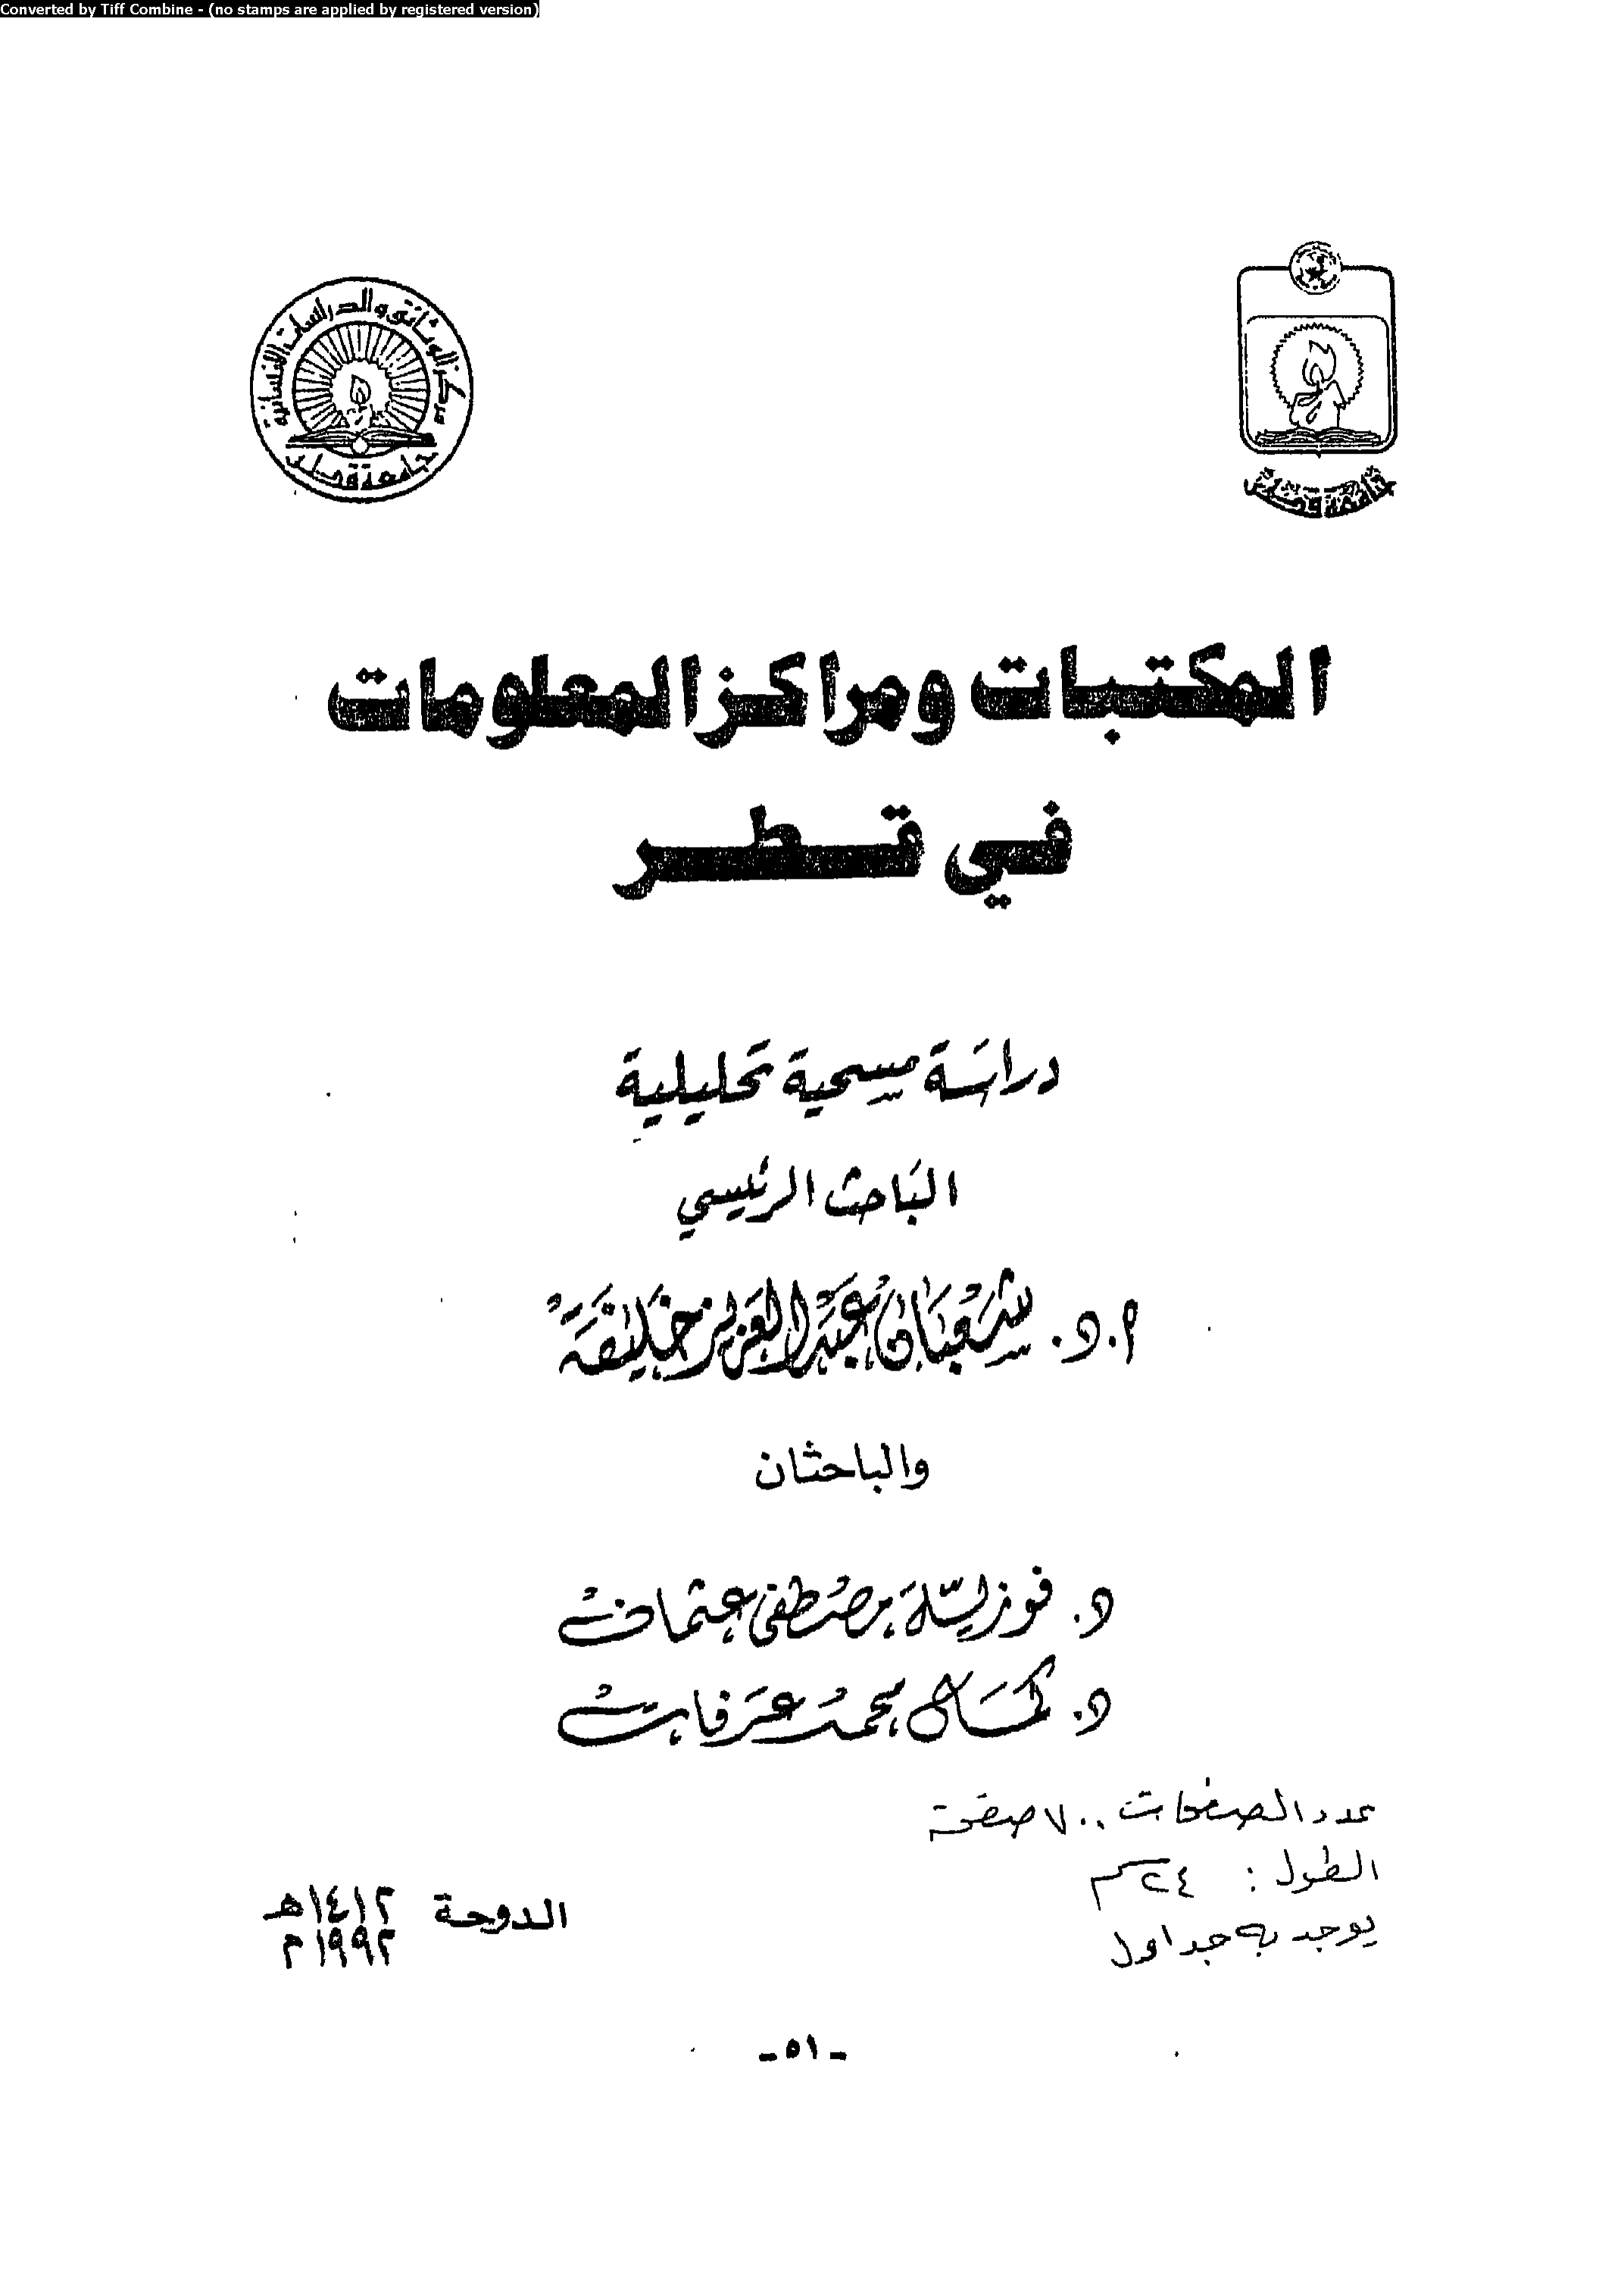 Converted by Tiff Combine - (no stamps are applied by registered version)
مركز الوثائق والدراسات الانسانية
جامعة قطر
جامعة قطر
المكتبات ومراكز المعلومات
في قطر
دراسة مسحية تحليلية
الباحث الرئيسي
أ.د. شعبان عبد العزيز خليفة
والباحثان
د. فوزية مصطفى عثمان
د. كمال محمد عرفات
عدد الصفحات ٧٠٠ صفحة
الطول : ٢٤ سم
يوجد به جداول
الدوحة ١٤١٢هـ
١٩٩٢م
- ٥١ -